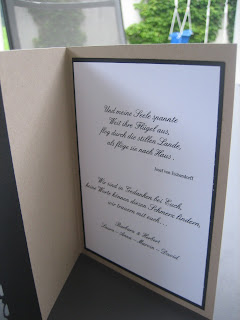 Und meine Seele spannte
Weit ihre Flügel aus,
flog durch die stillen Lande,
als flöge sie nach Haus .
Josef von Eichendorff
Wir sind in Gedanken bei Euch,
keine Worte können diesen Schmerz lindern,
wir trauern mit euch...
Barbara & Herbert
Laura - Anna - Marvin - David